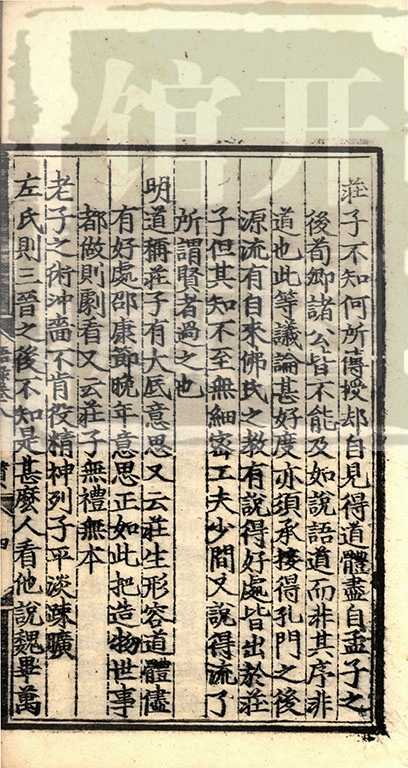 莊子不知何所傳授却自見得道體盡自孟子之
後荀卿諸公皆不能及如說語道而非其序非
道也此等議論甚好度亦須承接得孔門之後
源流有自來佛氏之教有說得好處皆出於莊
子但其知不至無細密工夫少間又說得流了
所謂賢者過之也
明道稱莊子有大底意思又云莊生形容道體儘
有好處邵康節晚年意思正如此把造物世事
都做則劇看又云莊子無禮無本
老子之術沖嗇不肯役精神列子平淡疎曠
左氏則三晉之後不知是甚麽人看他說魏畢萬